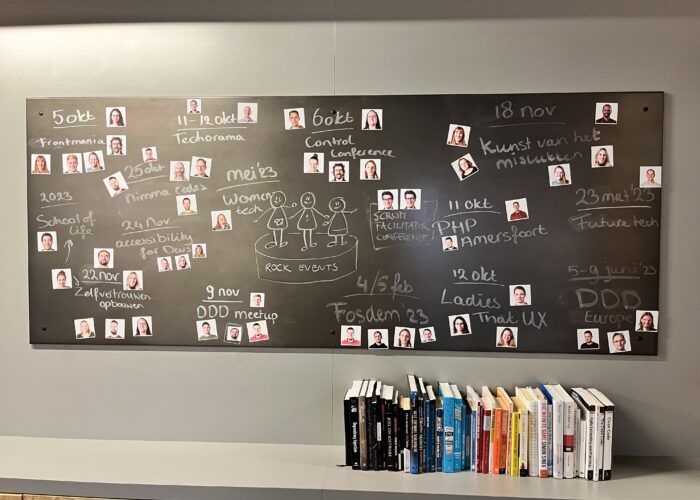 5 okt
Frontmania
11-12 okt
Techorama
6 okt
Control
Conference
18 nov
Kunst van het
mislukken
25 okt
Nimma Codes
mei '23
Women
tech
2023
School of
life
24 nov
accessibility
for Devs
ROCK EVENTS
SCRUM
FACILITATOR
CONFERENCE
11 okt
PHP
Amersfoort
23 mei '23
Future tech
22 nov
Zelfvertrouwen
opbouwen
9 nov
DDD meetup
4/5 feb
Fosdem 23
12 okt
Ladies
That UX
5-9 juni '23
DDD
Europe